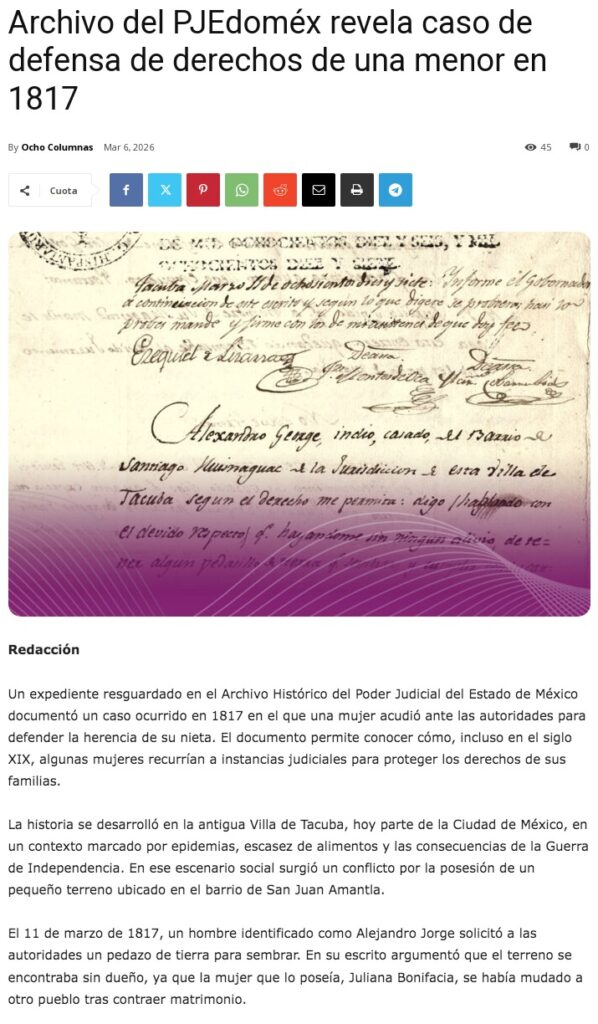 Archivo del PJEdoméx revela caso de
defensa de derechos de una menor en
1817
By Ocho Columnas Mar 6, 2026 45 0
Cuota
DE MIL OCHOCIENTOS DIEZ Y SEIS, Y MIL
OCHOCIENTOS DIEZ Y SIETE.
Tacuba Marzo 11 de ochosientos dies y siete: Informe el Gobernador
a continuacion de este escrito y segun lo que digere se probeera haci lo
mande y firme con los de mi de que doy fee
Alexandro George, indio, casado, del Barrio de
Santiago de la Jurisdicion de esta Villa de
Tacuba segun el derecho me permita: digo (hablando con
el devido respecto) q. hayandome sin ningun alivio de te-
ner algun pedasillo de tierra
Redacción
Un expediente resguardado en el Archivo Histórico del Poder Judicial del Estado de México
documentó un caso ocurrido en 1817 en el que una mujer acudió ante las autoridades para
defender la herencia de su nieta. El documento permite conocer cómo, incluso en el siglo
XIX, algunas mujeres recurrían a instancias judiciales para proteger los derechos de sus
familias.
La historia se desarrolló en la antigua Villa de Tacuba, hoy parte de la Ciudad de México, en
un contexto marcado por epidemias, escasez de alimentos y las consecuencias de la Guerra
de Independencia. En ese escenario social surgió un conflicto por la posesión de un
pequeño terreno ubicado en el barrio de San Juan Amantla.
El 11 de marzo de 1817, un hombre identificado como Alejandro Jorge solicitó a las
autoridades un pedazo de tierra para sembrar. En su escrito argumentó que el terreno se
encontraba sin dueño, ya que la mujer que lo poseía, Juliana Bonifacia, se había mudado a
otro pueblo tras contraer matrimonio.